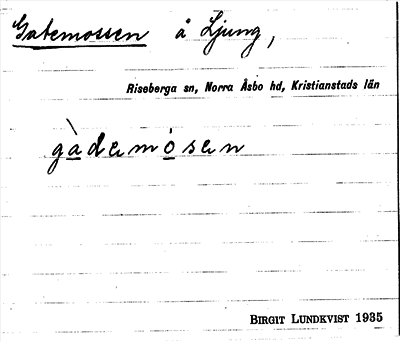 Gatemossen å Ljung,
Riseberga sn, Norra Åsbo hd, Kristianstads län
gàdemósen
BIRGIT LUNDKVIST 1935